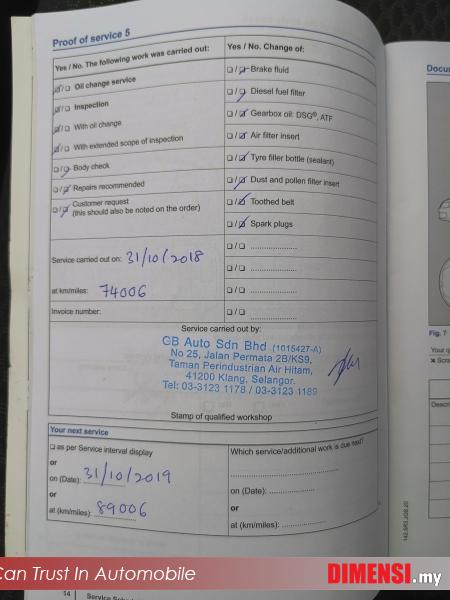 Proof of service 5
Yes / No. The following work was carried out:
☑/☐ Oil change service
☑/☐ Inspection
☑/☐ With oil change
☑/☐ With extended scope of inspection
☐/☑ Body check
☐/☑ Repairs recommended
☐/☑ Customer request
(this should also be noted on the order)
Service carried out on: 31/10/2018
at km/miles: 74006
Invoice number:
Yes / No. Change of:
☐/☑ Brake fluid
☐/☑ Diesel fuel filter
☐/☑ Gearbox oil: DSG®, ATF
☐/☑ Air filter insert
☐/☑ Tyre filler bottle (sealant)
☐/☑ Dust and pollen filter insert
☐/☑ Toothed belt
☐/☑ Spark plugs
☐/☐ .....................
☐/☐ .....................
☐/☐ .....................
☐/☐ .....................
Service carried out by:
CB Auto Sdn Bhd (1015427-A)
No 25, Jalan Permata 2B/KS9,
Taman Perindustrian Air Hitam,
41200 Klang, Selangor.
Tel: 03-3123 1178 / 03-3123 1189
Stamp of qualified workshop
Your next service
☐ as per Service interval display
or
on (Date): 31/10/2019
or
at (km/miles): 89006
Which service/additional work is due next?
on (Date): ................
or
at (km/miles): ................
14 Service Sche
Docu
Fig. 7
Your q
Scra
Descri
142.5R3.JG8.20
Can Trust In Automobile
DIMENSI.my